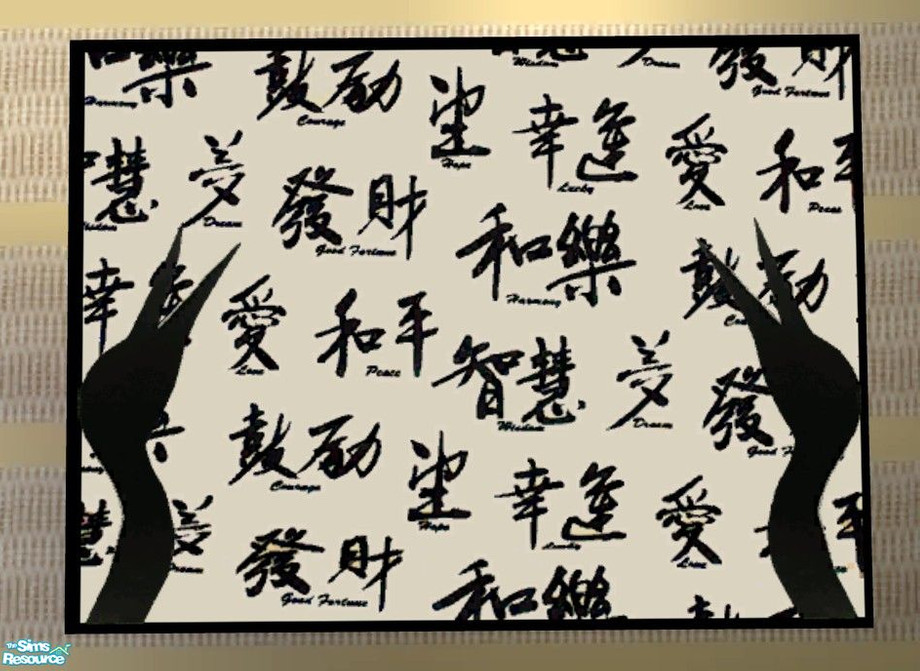 樂
Harmony
鼓励
Courage
Wisdom
Dream
發財
Good Fortune
望
Hope
幸運
Lucky
愛
Love
和平
Peace
慧
夢
Dream
發財
Good Fortune
和樂
Harmony
鼓励
幸
愛
Love
和平
Peace
智慧
Wisdom
夢
Dream
發
Good F
鼓励
Courage
望
Hope
幸運
Lucky
愛
Love
慧
發財
Good Fortune
和樂
The Sims Resource